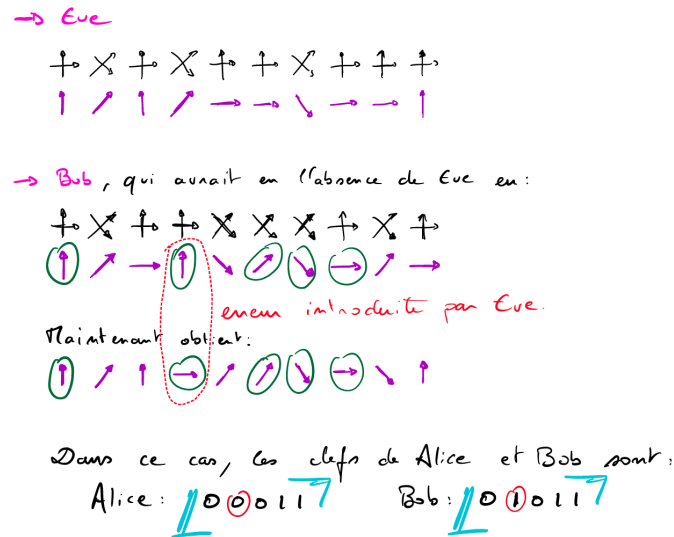 → Eve
→ Bob, qui aurait en l'absence de Eve eu :
erreur introduite par Eve.
Maintenant obtient :
Dans ce cas, les clefs de Alice et Bob sont :
Alice : 00011 Bob : 01011